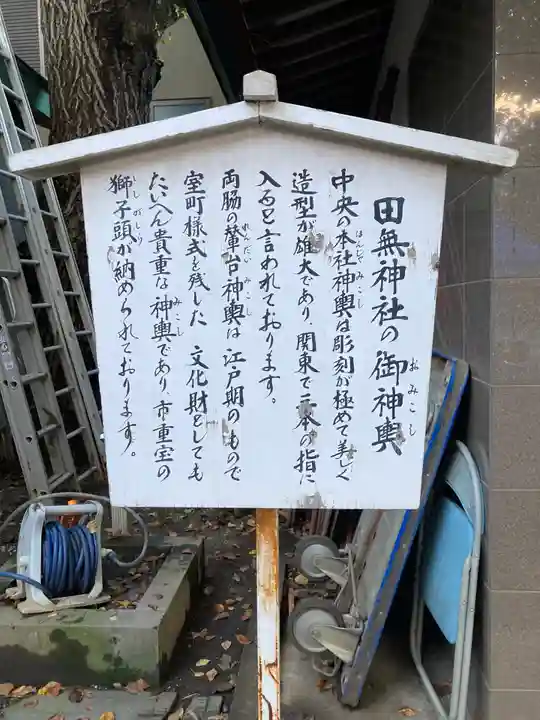 田無神社の御神輿
おみこし
中央の本社神輿は彫刻が極めて美しく
ほんじゃみこし
造型が雄大であり、関東で三本の指に
入ると言われております。
両脇の輦台神輿は江戸期のもので
れんだいみこし
室町様式を残した 文化財としても
たいへん貴重な神輿であり市重宝の
みこし
獅子頭が納められております。
ししがしら